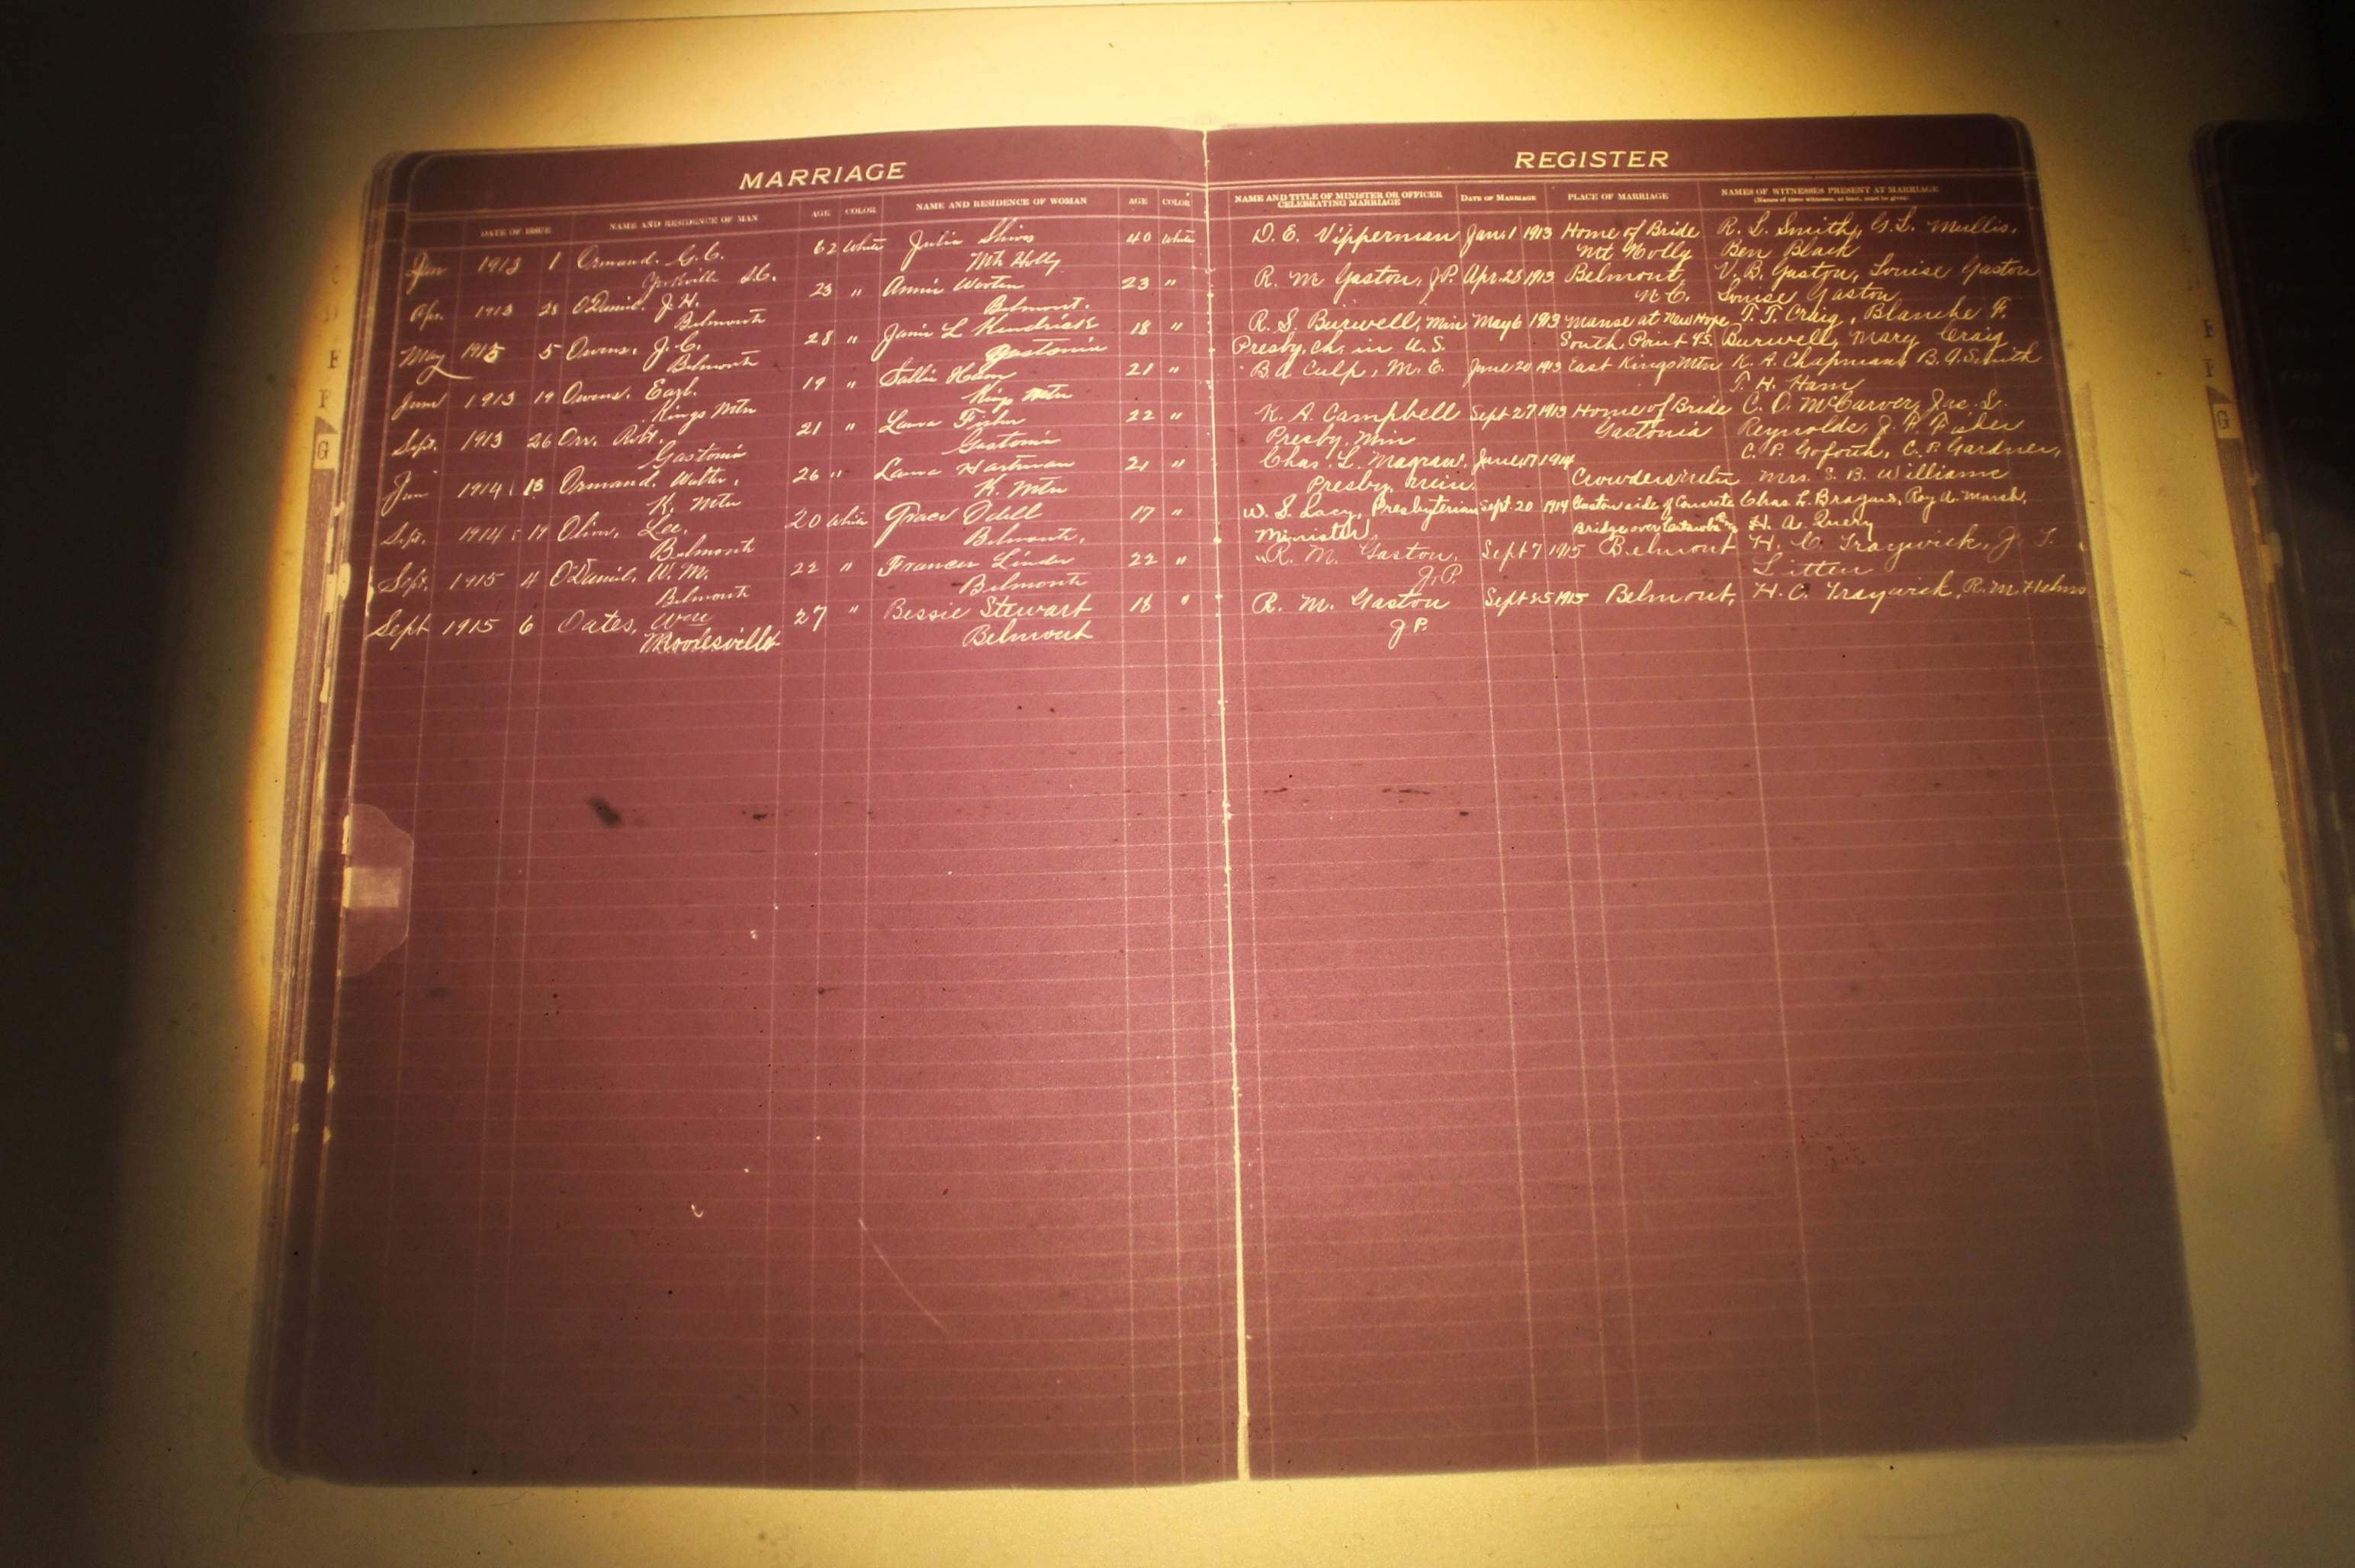 MARRIAGE
REGISTER
DATE OF ISSUE NAME AND RESIDENCE OF MAN AGE COLOR NAME AND RESIDENCE OF WOMAN AGE COLOR
NAME AND TITLE OF MINISTER OR OFFICER CELEBRATING MARRIAGE DATE OF MARRIAGE PLACE OF MARRIAGE NAMES OF WITNESSES PRESENT AT MARRIAGE
(Names of three witnesses, at least, must be given)
Jan 1913 1 Ormand. 62 White Julia Shives 40 White
Yorkville S.C. Mt. Holly
Apr. 1913 28 O'Daniel. J.H. 23 " Annie Wooten 23 "
Belmont Belmont.
May 1913 5 Owens. J.C. 28 " Janie L Kendrick 18 "
Belmont Gastonia
June 1913 19 Owens. Earl. 19 " Sallie Ham 21 "
Kings Mtn Kings Mtn
Sept. 1913 26 Orr. Robt. 21 " Laura Fisher 22 "
Gastonia Gastonia
1914 Ormand. Walter. 26 " Hartman 21 "
K. Mtn K. Mtn
Sept. 1914 19 Lee. 20 White Grace Odell 17 "
Belmont Belmont.
Sept. 1915 4 O'Daniel. W.M. 22 " Frances Linder 22 "
Belmont Belmont
Sept 1915 6 Oates, Wm 27 " Bessie Stewart 18 "
Mooresville Belmont
D. E. Vipperman Jan. 1 1913 Home of Bride R. L. Smith, G. L. Mullis,
Mt Holly Ben Black
R. M Gaston, J.P. Apr. 28 1913 Belmont V. B. Gaston, Louise Gaston
N.C. Louise Gaston
R. S. Burwell, Min May 6 1913 Manse at New Hope T. T. Craig, Blanche F.
Presby. Ch. in U.S. South Point Burwell, Mary Craig
B. A. Culp, M. E. June 20 1913 East Kings Mtn K. A. Chapman, B. A. Smith
T. H. Ham
K. A. Campbell Sept 27 1913 Home of Bride C. O. McCarver, Jas. L.
Presby. Min Gastonia Reynolds, J. A. Fisher
Chas. L. Magraw. June 17 1914 C. P. Goforth, C. P. Gardner,
Presby. Min. Crowders Mrs. S. B. Williams
W. S. Lacy, Presbyterian Sept. 20 1914 Gaston side of Concrete Chas L. Bragaw, Roy A. Marsh,
Minister Bridge over Catawba H. A. Query
R. M. Gaston. Sept 7 1915 Belmont H. C. Traywick, J. T.
J.P. Litten
R. M. Gaston Sept 25 1915 Belmont, H. C. Traywick, R. M. Helms
J P.
E
F
G
G